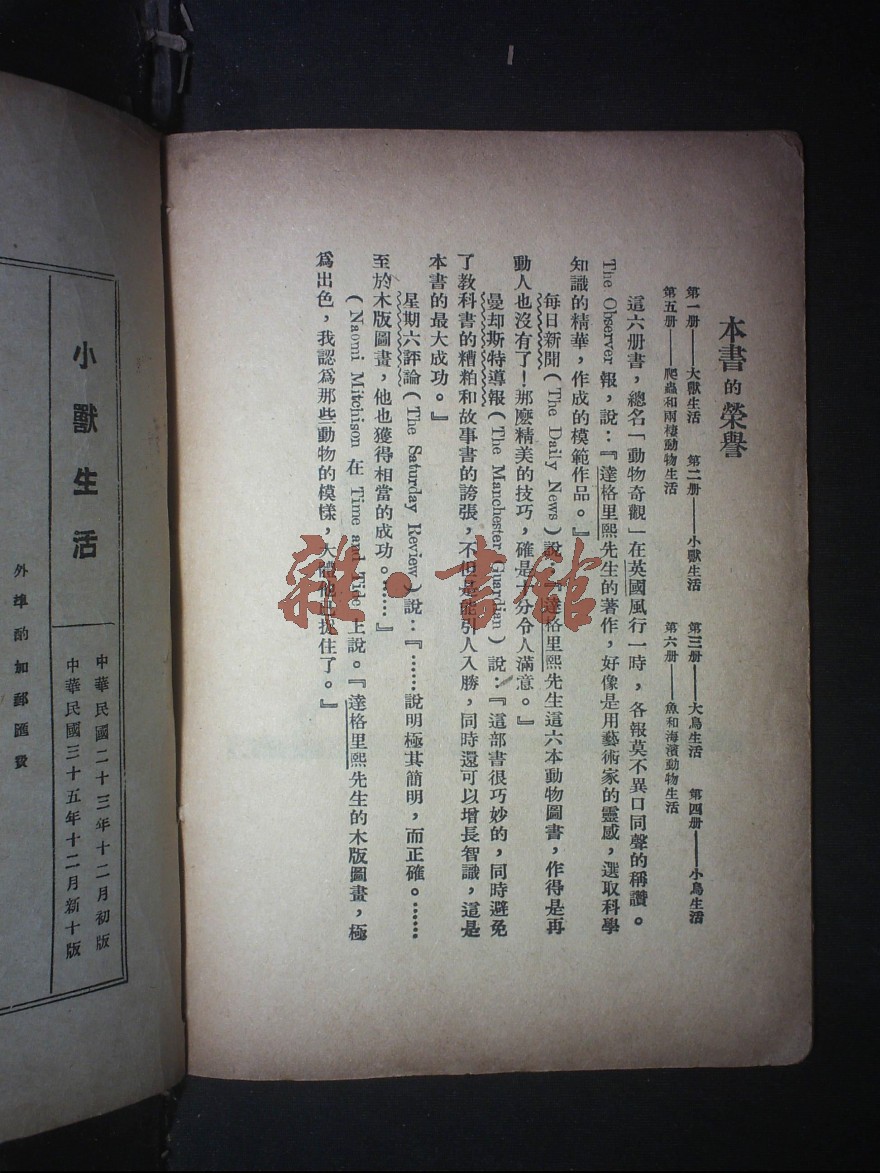 本書的榮譽
第一册——大獸生活 第二册——小獸生活 第三册——大鳥生活 第四册——小鳥生活
第五册——爬蟲和兩棲動物生活 第六册——魚和海濱動物生活
這六册書，總名「動物奇觀」在英國風行一時，各報莫不異口同聲的稱讚。
The Observer 報，說：『達格里熙先生的著作，好像是用藝術家的靈感，選取科學
知識的精華，作成的模範作品。』
每日新聞(The Daily News)說：『達格里熙先生這六本動物圖書，作得是再
動人也沒有了！那麽精美的技巧，確是十分令人滿意。』
曼却斯特導報(The Manchester Guardian)說：『這部書很巧妙的，同時避免
了教科書的糟粕和故事書的誇張，不但是能引人入勝，同時還可以增長智識，這是
本書的最大成功。』
星期六評論(The Saturday Review)說：『……說明極其簡明，而正確。……
至於木版圖畫，他也獲得相當的成功。……』
(Naomi Mitchison 在 Time and Tide 上說。『達格里熙先生的木版圖畫，極
爲出色，我認爲那些動物的模樣，大體他出扠住了。』
雜·書館
中華民國二十三年十二月初版
中華民國三十五年十二月新十版
小獸生活
外埠酌加郵匯費